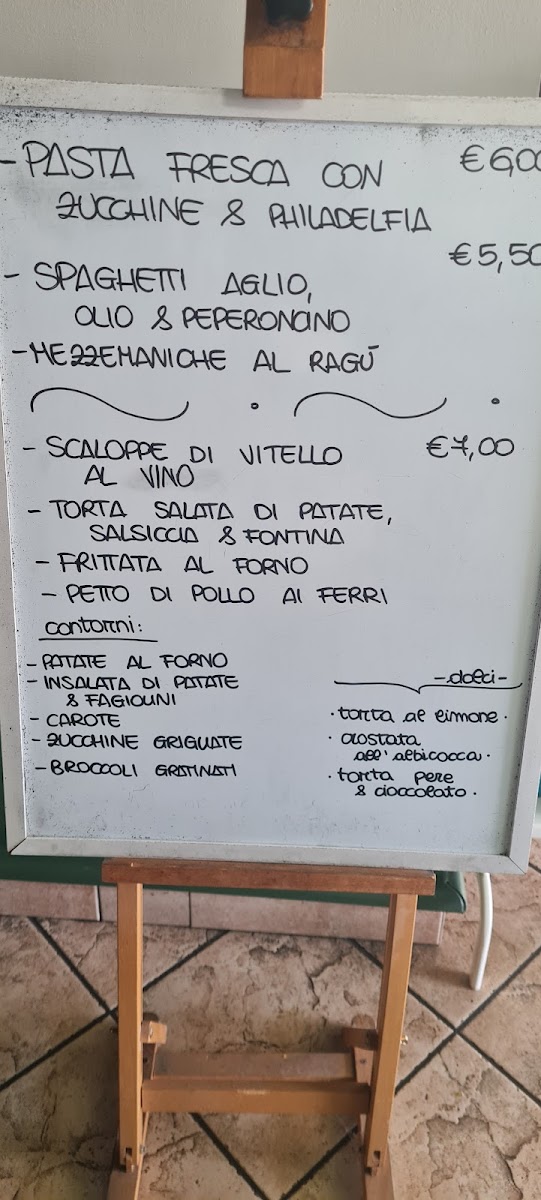 - PASTA FRESCA CON € 6,00
ZUCCHINE & PHILADELFIA
€ 5,50
- SPAGHETTI AGLIO,
OLIO & PEPERONCINO
- MEZZEMANICHE AL RAGÚ
- SCALOPPE DI VITELLO € 7,00
AL VINO
- TORTA SALATA DI PATATE,
SALSICCIA & FONTINA
- FRITTATA AL FORNO
- PETTO DI POLLO AI FERRI
contorni:
- PATATE AL FORNO
- INSALATA DI PATATE
& FAGIOLINI
- CAROTE
- ZUCCHINE GRIGLIATE
- BROCCOLI GRATINATI
- dolci -
· torta al limone ·
· crostata
all'albicocca ·
· torta pere
& cioccolato ·